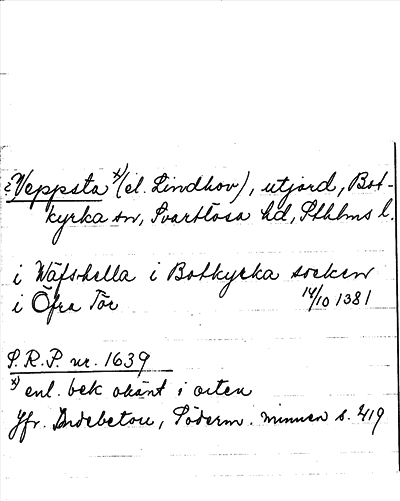 Veppsta x) (el. Lindhov), utjord, Bot-
kyrka sn, Svartlösa hd, Sthlms l.
i Wäfshella i Botkyrka socken
i Öfra Tör 14/10 1381
S.R.P. nr. 1639
x) enl. bek okänt i orten
Jfr. Indebetou, Söderm. minnen s. 419